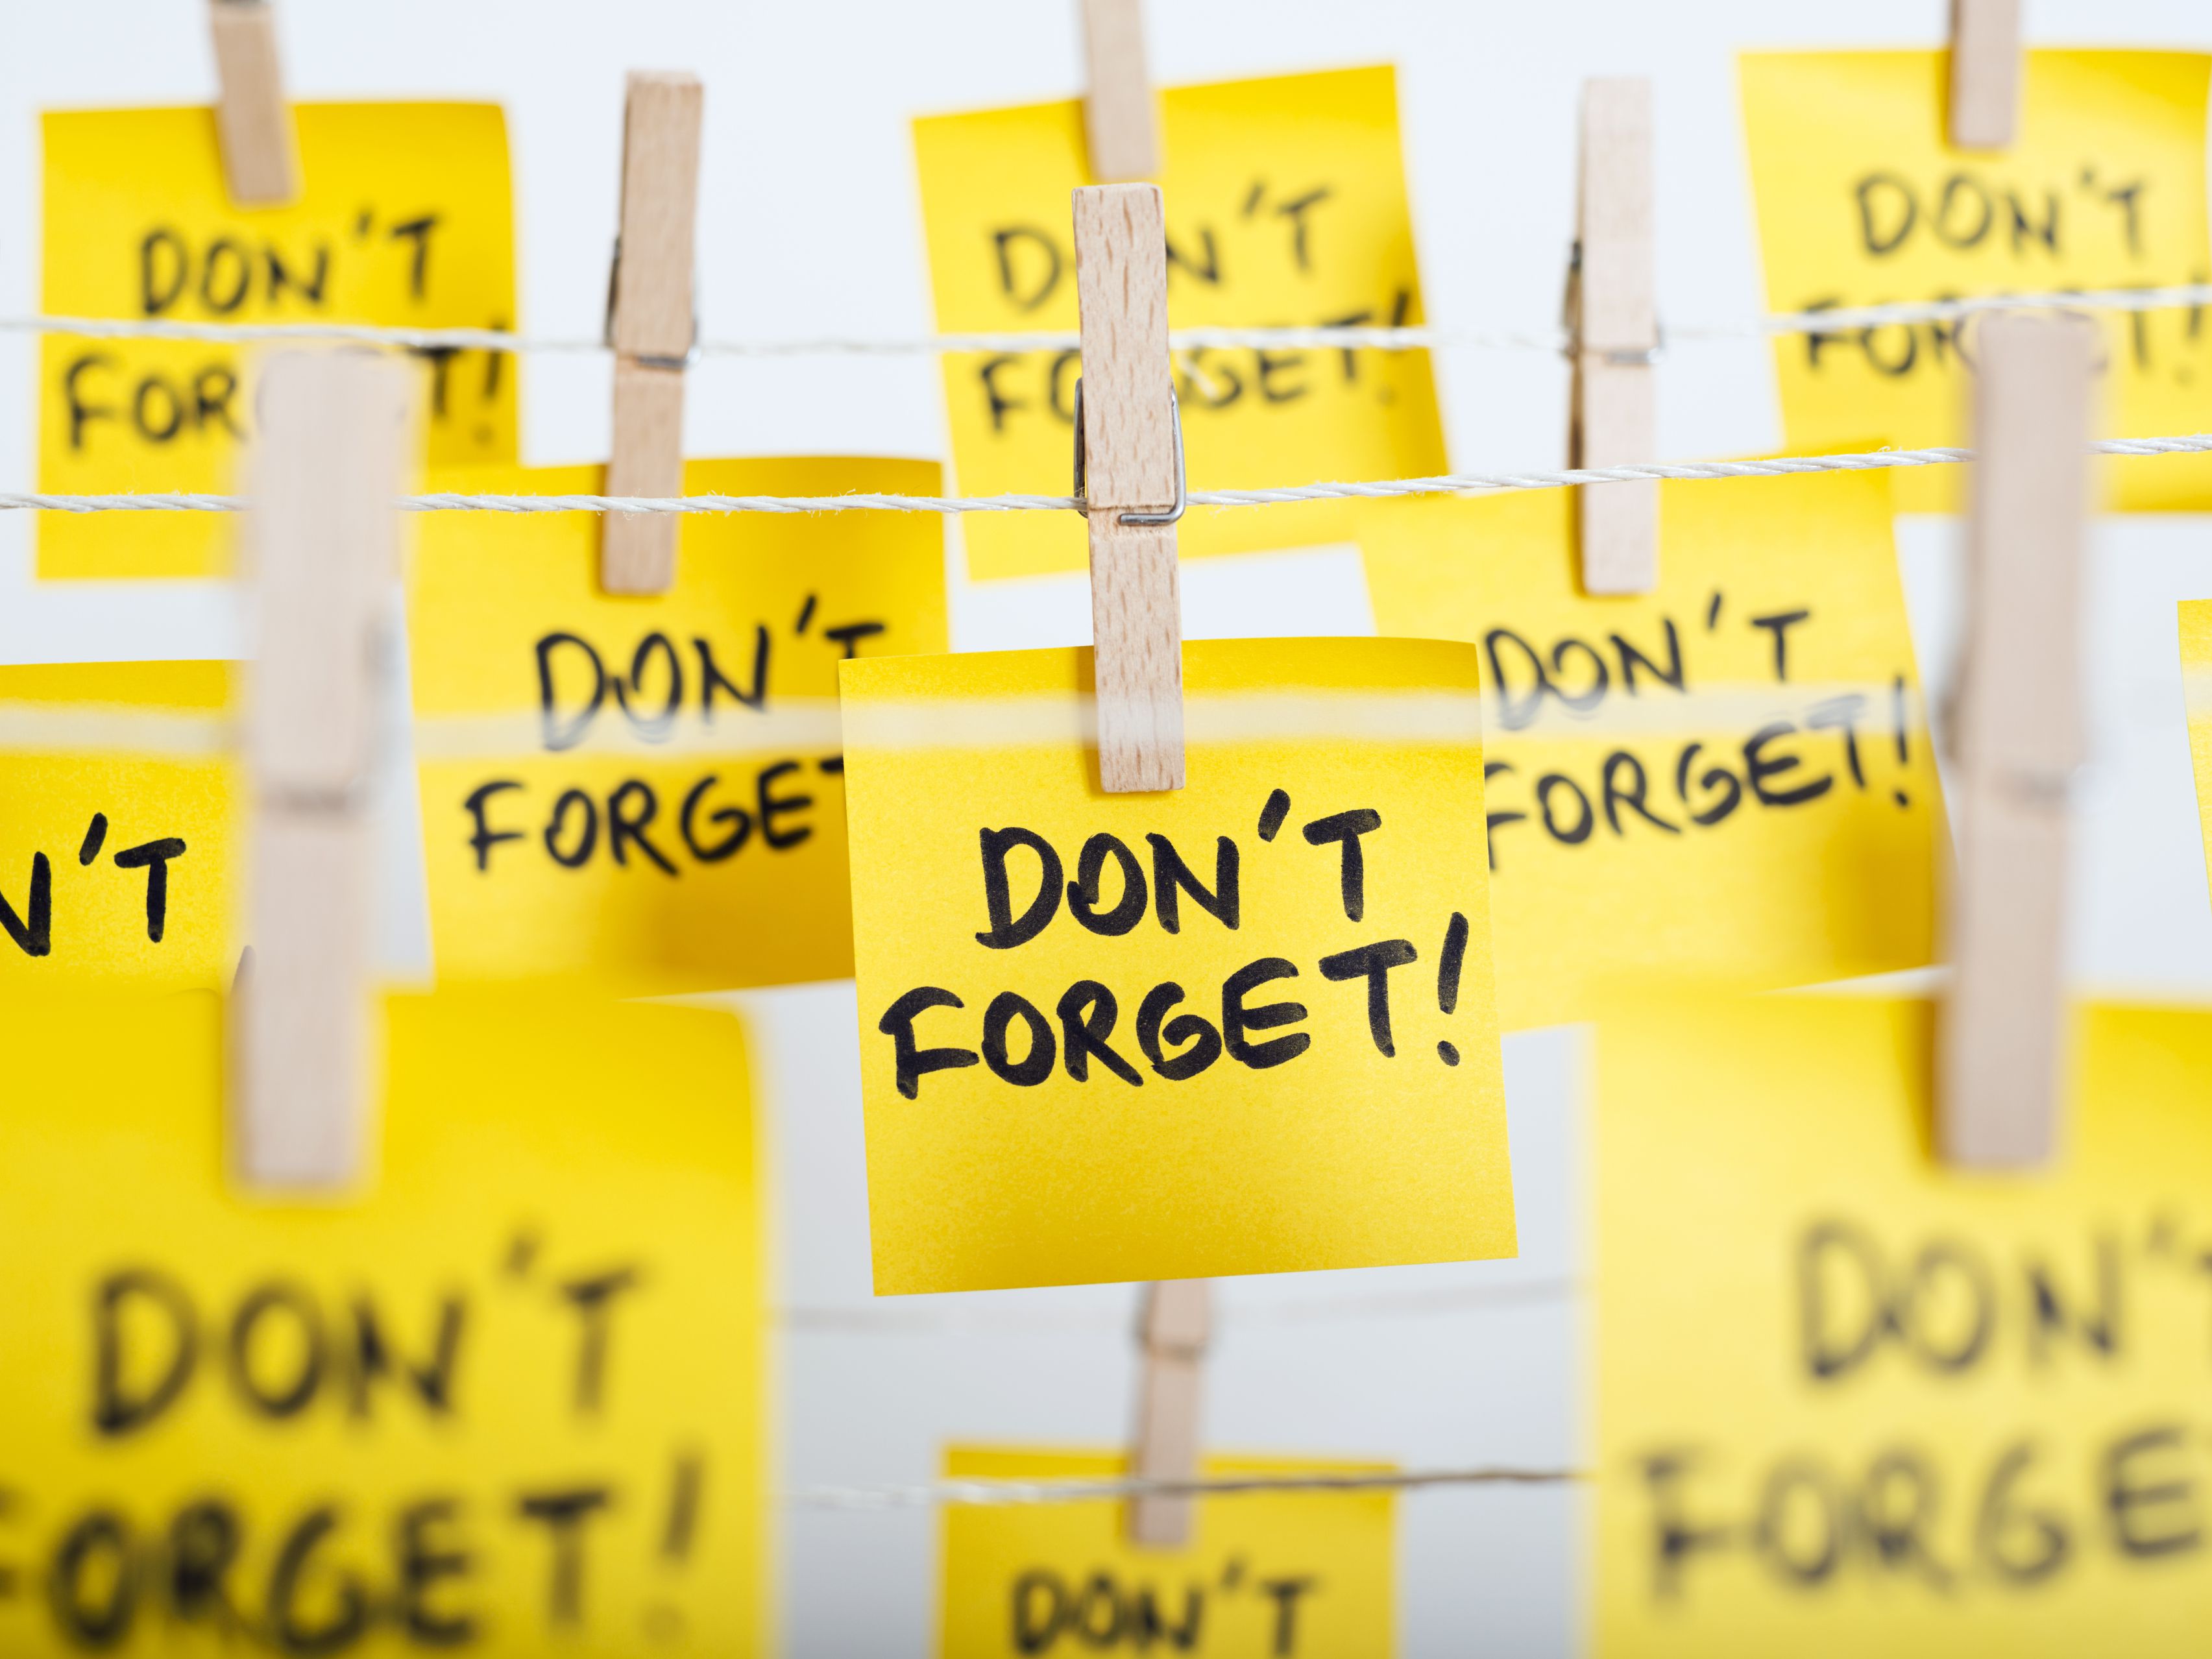 DON'T
FORGET!
DON'T
FORGET!
DON'T
FORGET!
DON'T
FORGET
DON'T
FORGET!
N'T
DON'T
FORGET!
DON'T
FORGET!
DON'
FORGE
DON'T